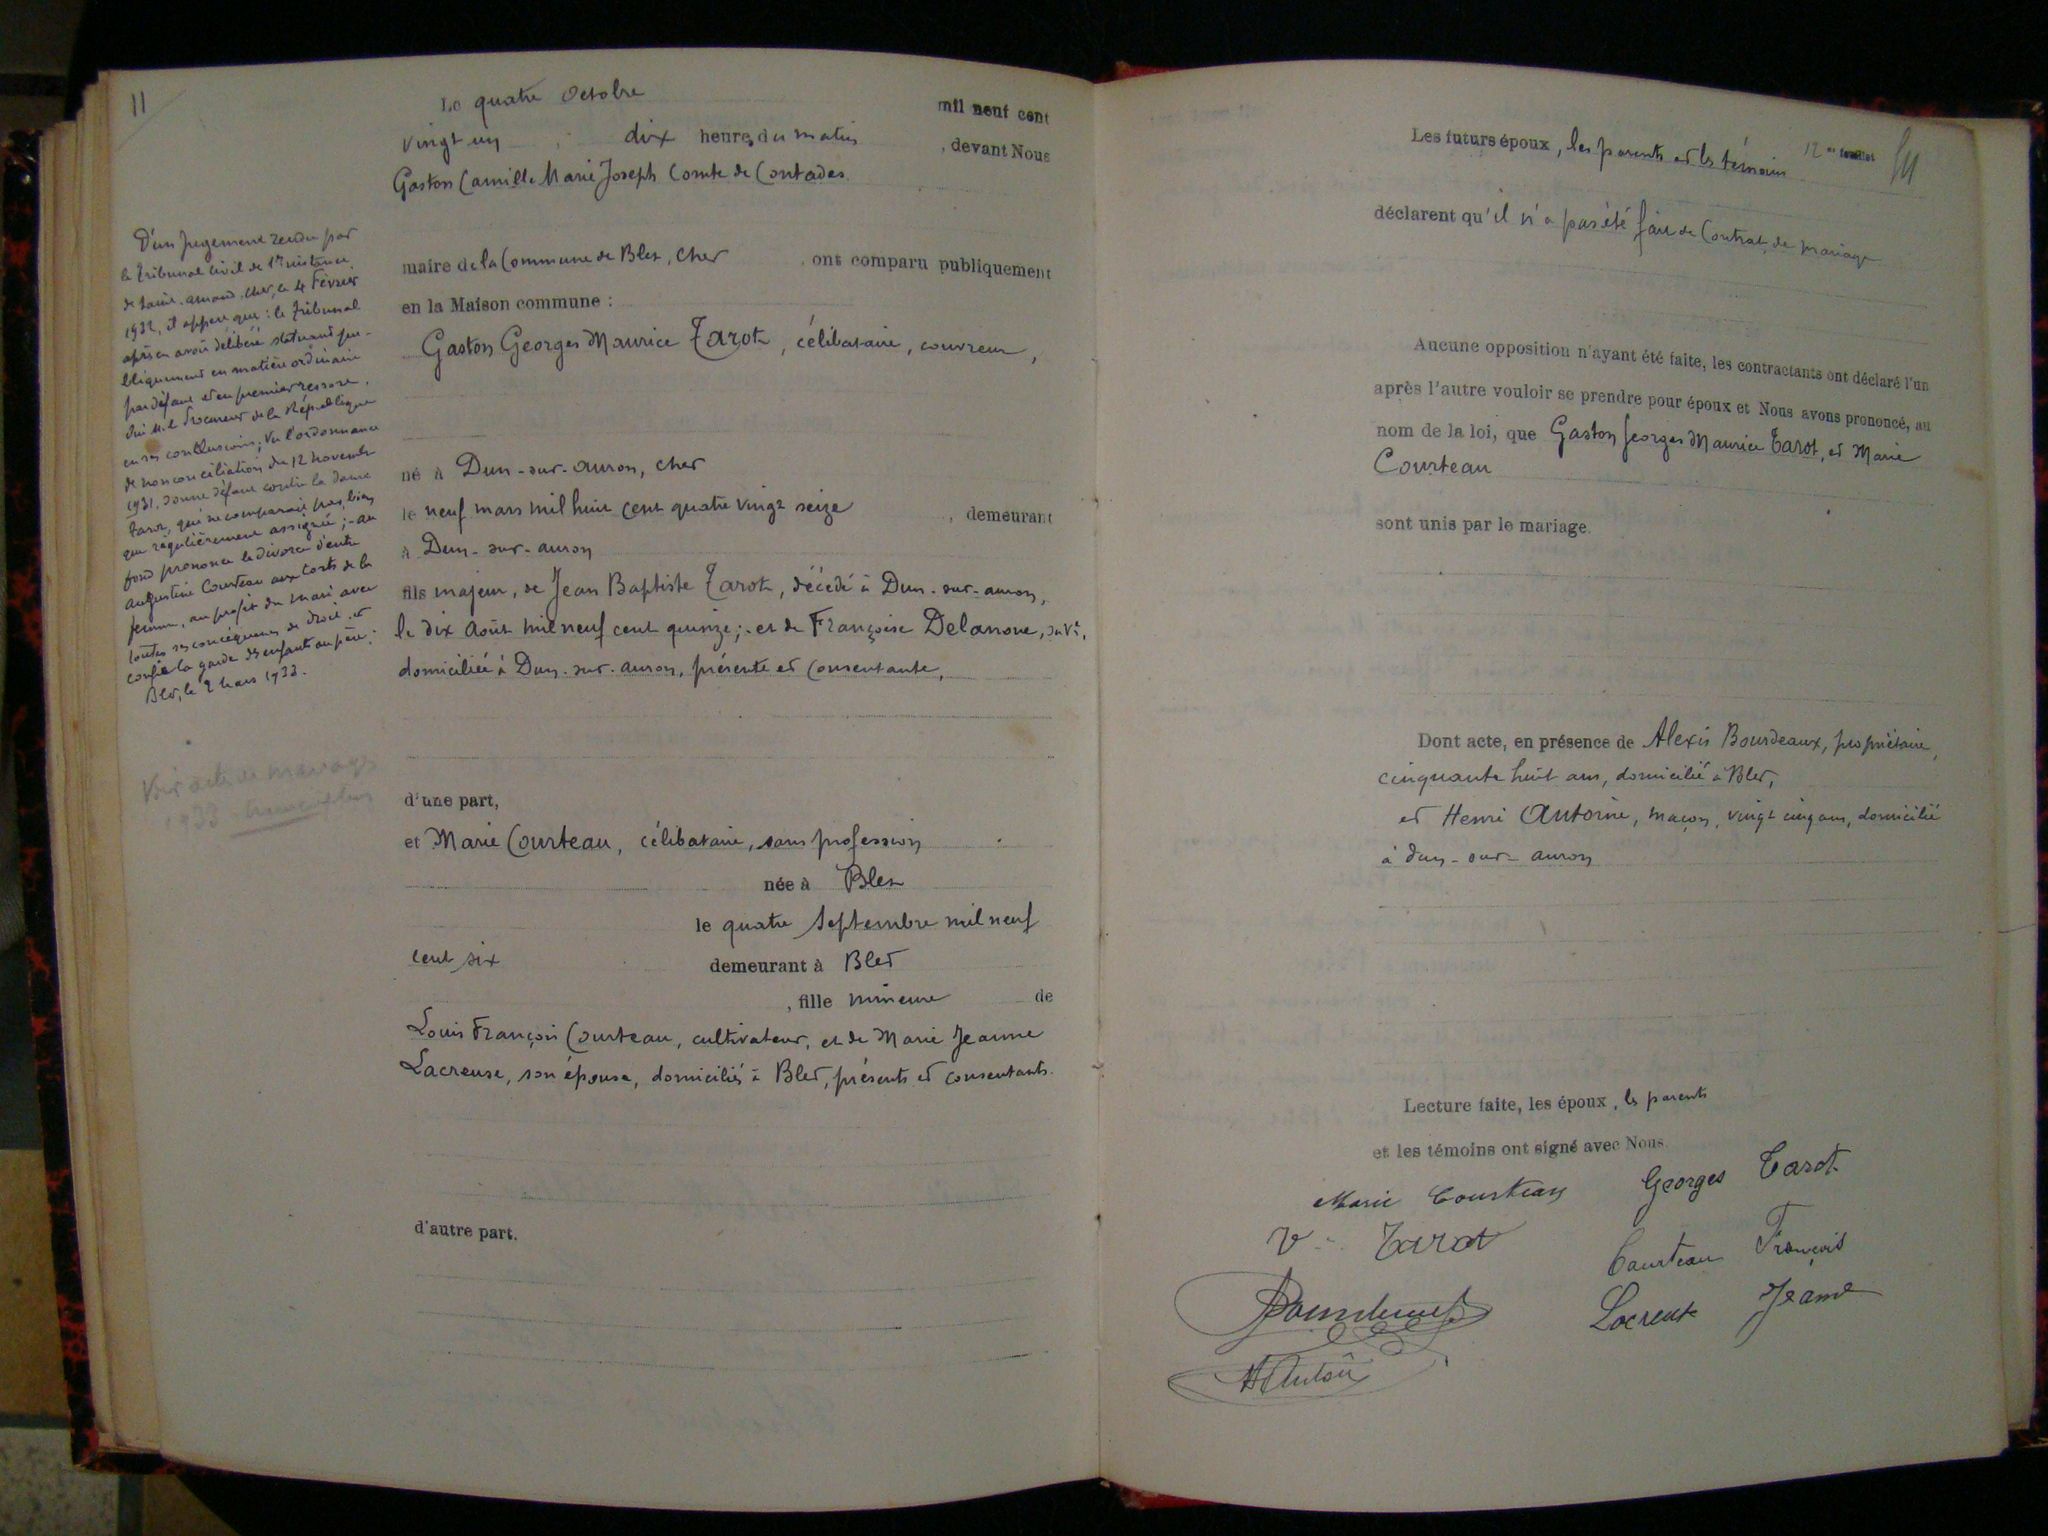 11
Le quatre Octobre mil neuf cent
vingt un dix heures du matin, devant Nous
Gaston Camille Marie Joseph Comte de Contades
maire de la Commune de Blet, Cher, ont comparu publiquement
en la Maison commune :
Gaston Georges Maurice Tarot, célibataire, couvreur,
né à Dun-sur-auron, Cher
le neuf mars mil huit cent quatre vingt seize, demeurant
à Dun-sur-auron
fils majeur, de Jean Baptiste Tarot, décédé à Dun-sur-auron,
le dix Août mil neuf cent quinze; et de Françoise Delanoue, sa Ve,
domiciliée à Dun-sur-auron, présente et consentante,
d'une part,
et Marie Courteau, célibataire, sans profession
née à Blet
le quatre Septembre mil neuf
cent six demeurant à Blet
, fille mineure de
Louis François Courteau, cultivateur, et de Marie Jeanne
Lacreuse, son épouse, domiciliés à Blet, présents et consentants.
d'autre part.
D'un Jugement rendu par
le Tribunal civil de 1re instance
de Saint-amand, Cher, le 4 Février
1932, il appert que : le Tribunal
après en avoir délibéré statuant pu-
bliquement en matière ordinaire
par défaut et en premier ressort.
Ouï M. le Procureur de la République
en ses conclusions; Vu l'ordonnance
de non conciliation du 12 novembre
1931, donne défaut contre la dame
Tarot, qui ne comparait pas, bien
que régulièrement assignée; - au
fond prononce le divorce d'entre
augustine Courteau aux torts de la
femme, au profit du mari avec
toutes ses conséquences de droit et
confie la garde des enfants au père.
Blet, le 2 Mars 1933.
Voir acte de mariage
1933
12me feuillet
Les futurs époux, les parents et les témoins
déclarent qu'il n'a pas été fait de Contrat de mariage
Aucune opposition n'ayant été faite, les contractants ont déclaré l'un
après l'autre vouloir se prendre pour époux et Nous avons prononcé, au
nom de la loi, que Gaston Georges Maurice Tarot, et Marie
Courteau
sont unis par le mariage.
Dont acte, en présence de Alexis Bourdeaux, propriétaire,
cinquante huit ans, domicilié à Blet,
et Henri Antoine, maçon, vingt cinq ans, domicilié
à dun-sur-auron
Lecture faite, les époux, les parents
et les témoins ont signé avec Nous.
Marie Courteau Georges Tarot
V Tarot
Courteau François
Lacreuse Jeanne